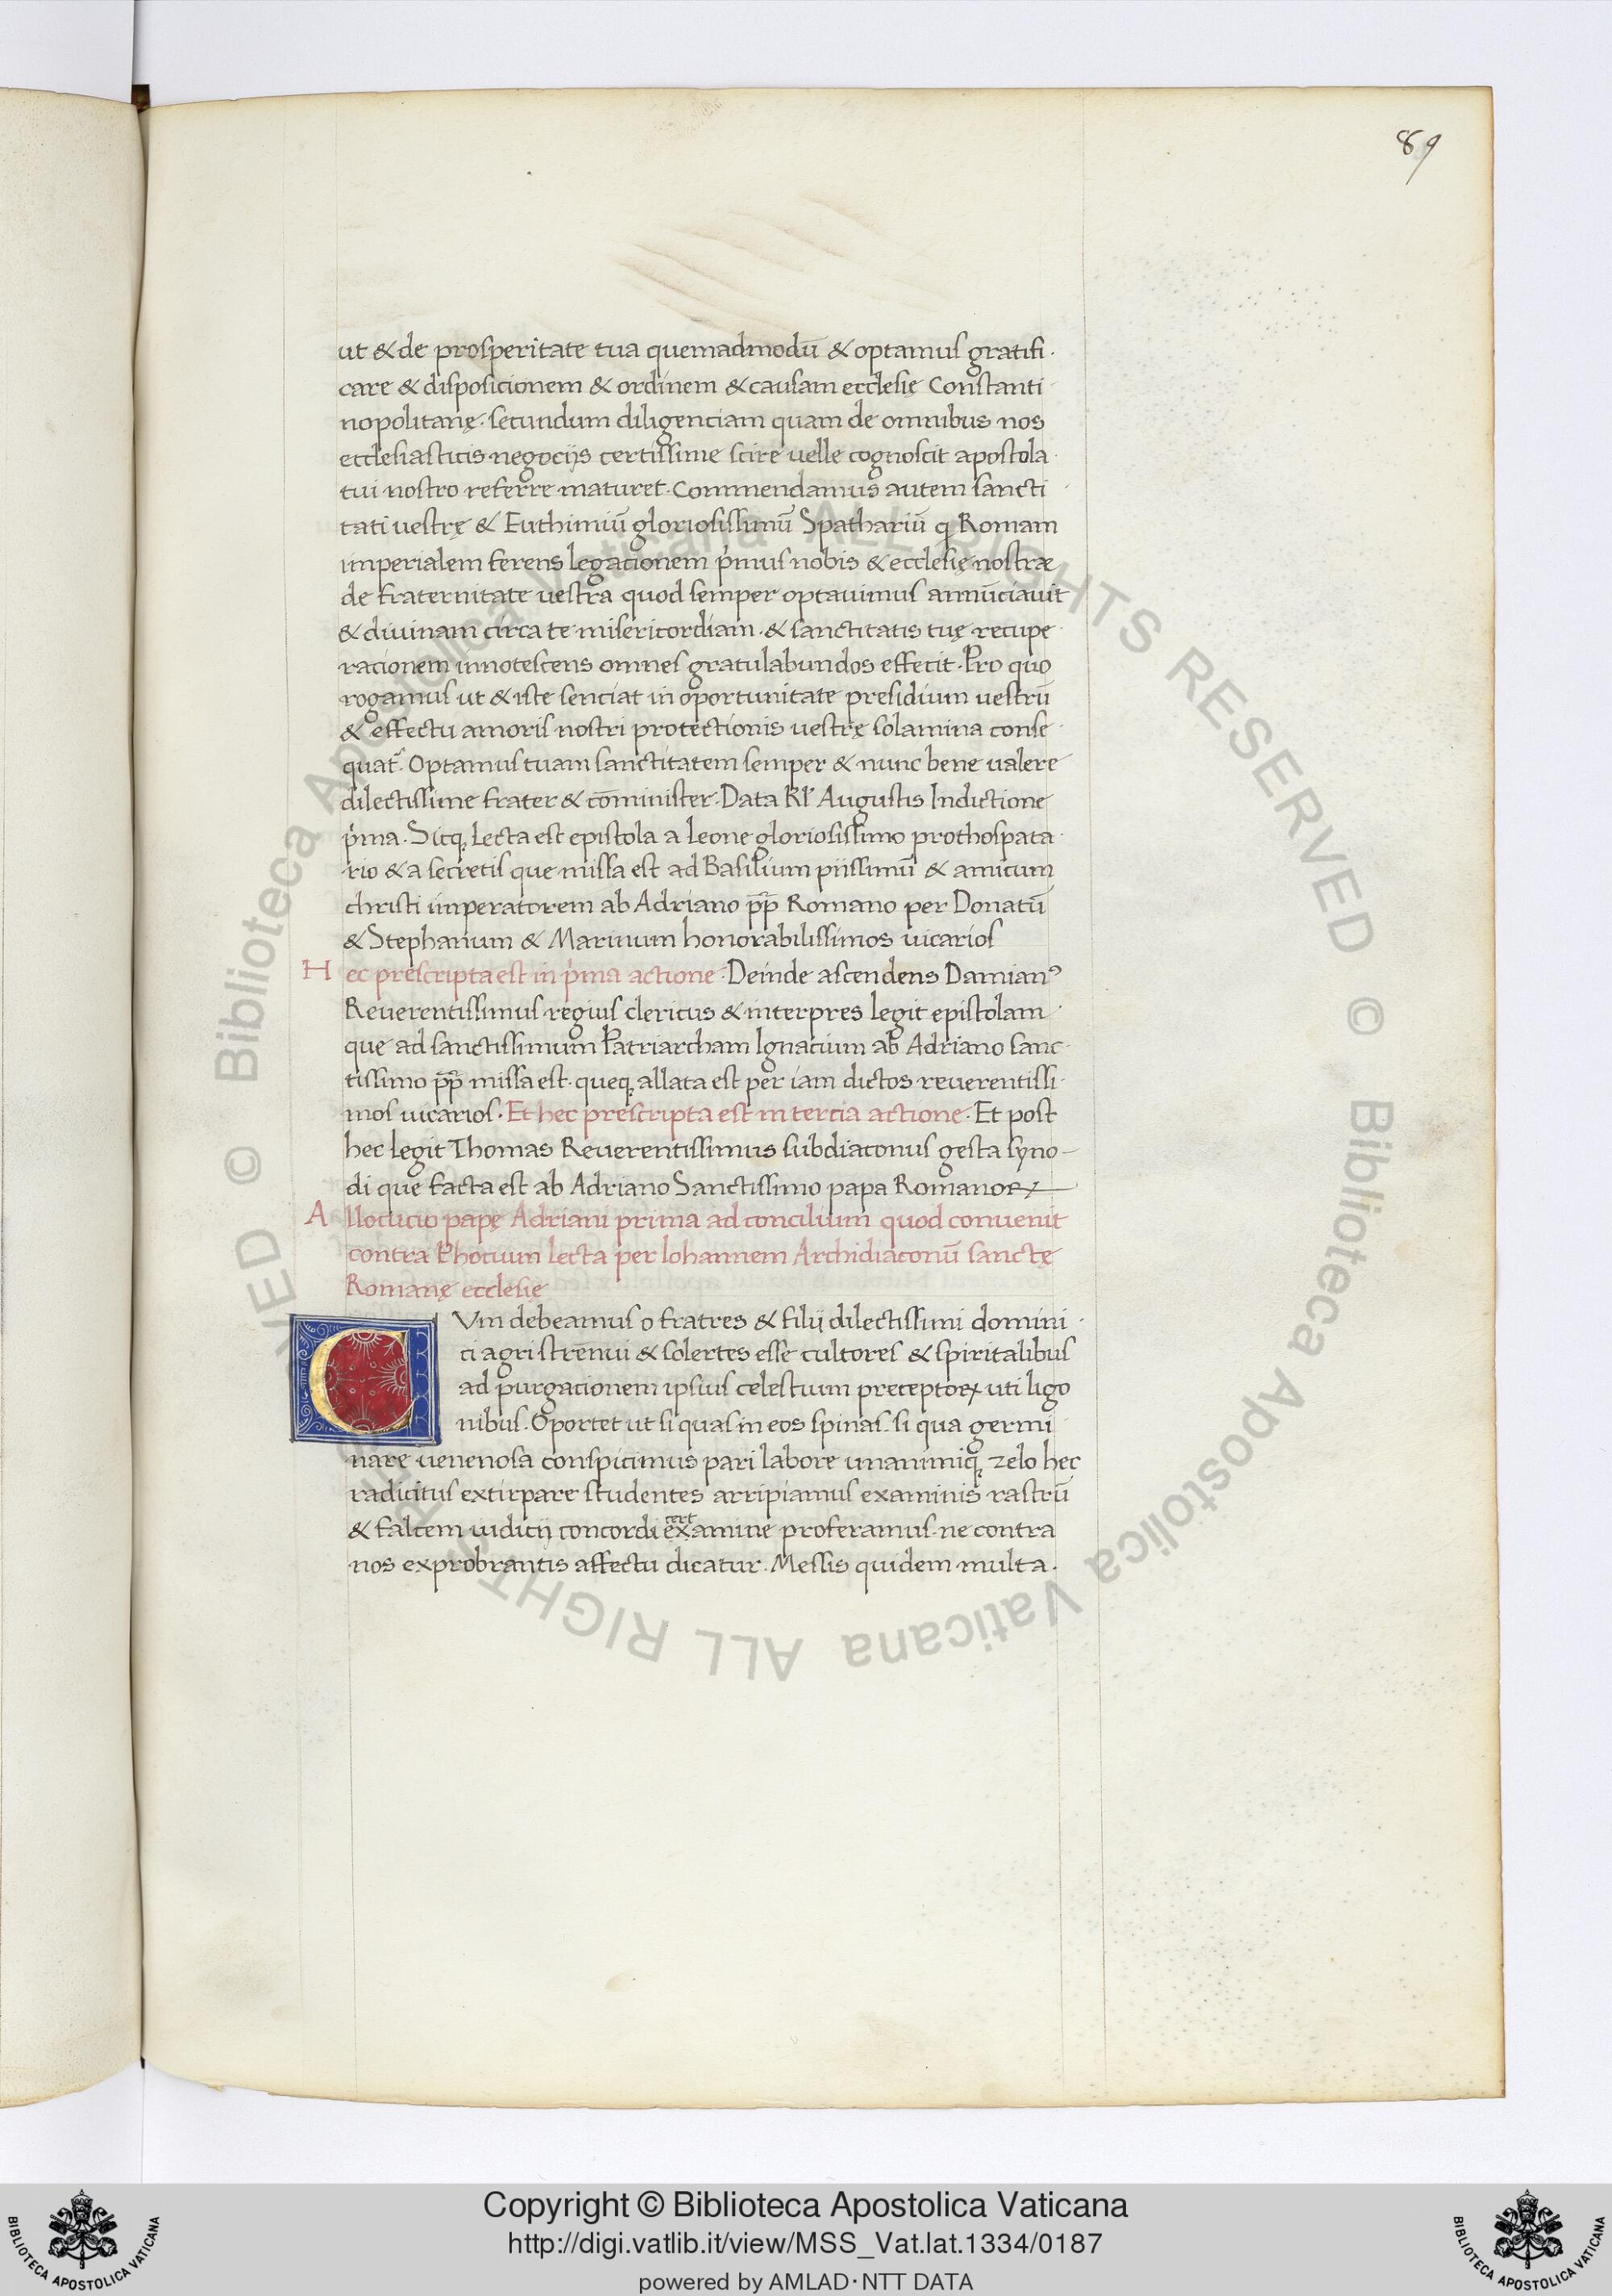 89
ut & de prosperitate tua quemadmodū & optamus gratifi·
care & disposicionem & ordinem & causam ecclesię Constanti
nopolitanę· secundum diligenciam quam de omnibus nos
ecclesiasticis negocijs certissime scire uelle cognoscit apostola
tui nostro referre maturet· Commendamus autem sancti
tati uestrę & Euthimiū gloriosissimū Spathariū q Romam
imperialem ferens legacionem p̾mus nobis & ecclesię nostræ
de fraternitate uestra quod semper optauimus annūciauit
& diuinam circa te misericordiam· & sanctitatis tuę recupe
racionem innotescens omnes gratulabundos effecit· Pro quo
rogamus ut & iste senciat in oportunitate presidium uestrū
& effectu amoris nostri protectionis uestrę solamina conse
quat᷑· Optamus tuam sanctitatem semper & nunc bene ualere
dilectissime frater & cōminister· Data Kl' Augustis Indictione
p̾ma· Sicq; Lecta est epistola a Leone gloriosissimo prothospata
rio & a secretis que missa est ad Basilium piissimū & amicum
christi imperatorem ab Adriano p̄p̄ Romano per Donatū
& Stephanum & Marinum honorabilissimos uicarios
Hec prescripta est in p̾ma actione· Deinde ascendens Damianꝰ
Reuerentissimus regius clericus & interpres legit epistolam
que ad sanctissimum Patriarcham Ignacium ab Adriano sanc
tissimo p̄p̄ missa est· queq; allata est per iam dictos reuerentissi
mos uicarios· Et hec prescripta est in tercia actione· Et post
hec legit Thomas Reuerentissimus subdiaconus gesta syno
di que facta est ab Adriano Sanctissimo papa Romanoꝝ
Allocucio papę Adriani prima ad concilium quod conuenit
contra Phocium lecta per Iohannem Archidiaconū sanctę
Romanę ecclesię
CVm debeamus o fratres & filij dilectissimi domini
ci agri strenui & solertes esse cultores & spiritalibus
ad purgacionem ipsius celestium preceptoꝝ uti ligo
nibus· Oportet ut si quas in eos spinas· si qua germi
nare uenenosa conspicimus pari labore unanimiq; zelo hec
radicitus extirpare studentes arripiamus examinis rastrū
& falcem iudicij concordi examine proferamus· ne contra
nos exprobrantis affectu dicatur· Messis quidem multa·
© Biblioteca Apostolica Vaticana ALL RIGHTS RESERVED
© Biblioteca Apostolica Vaticana ALL RIGHTS RESERVED
Copyright © Biblioteca Apostolica Vaticana
http://digi.vatlib.it/view/MSS_Vat.lat.1334/0187
powered by AMLAD·NTT DATA
BIBLIOTECA APOSTOLICA VATICANA
BIBLIOTECA APOSTOLICA VATICANA